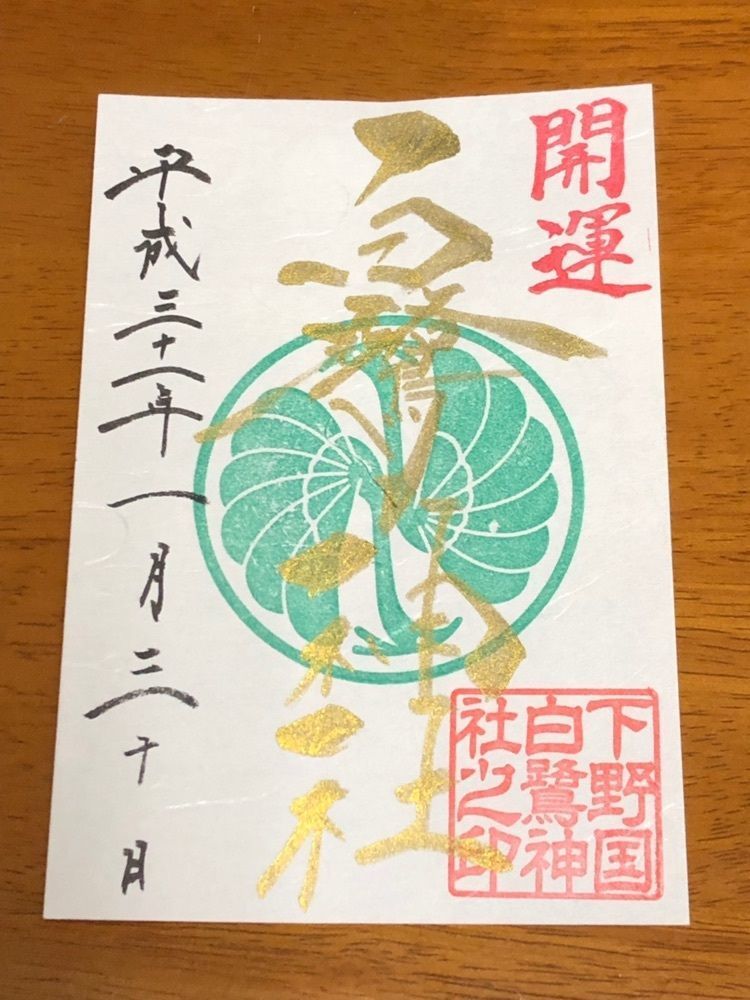 開運
白鷺神社
下野国
白鷺神
社之印
平成三十一年一月三十日